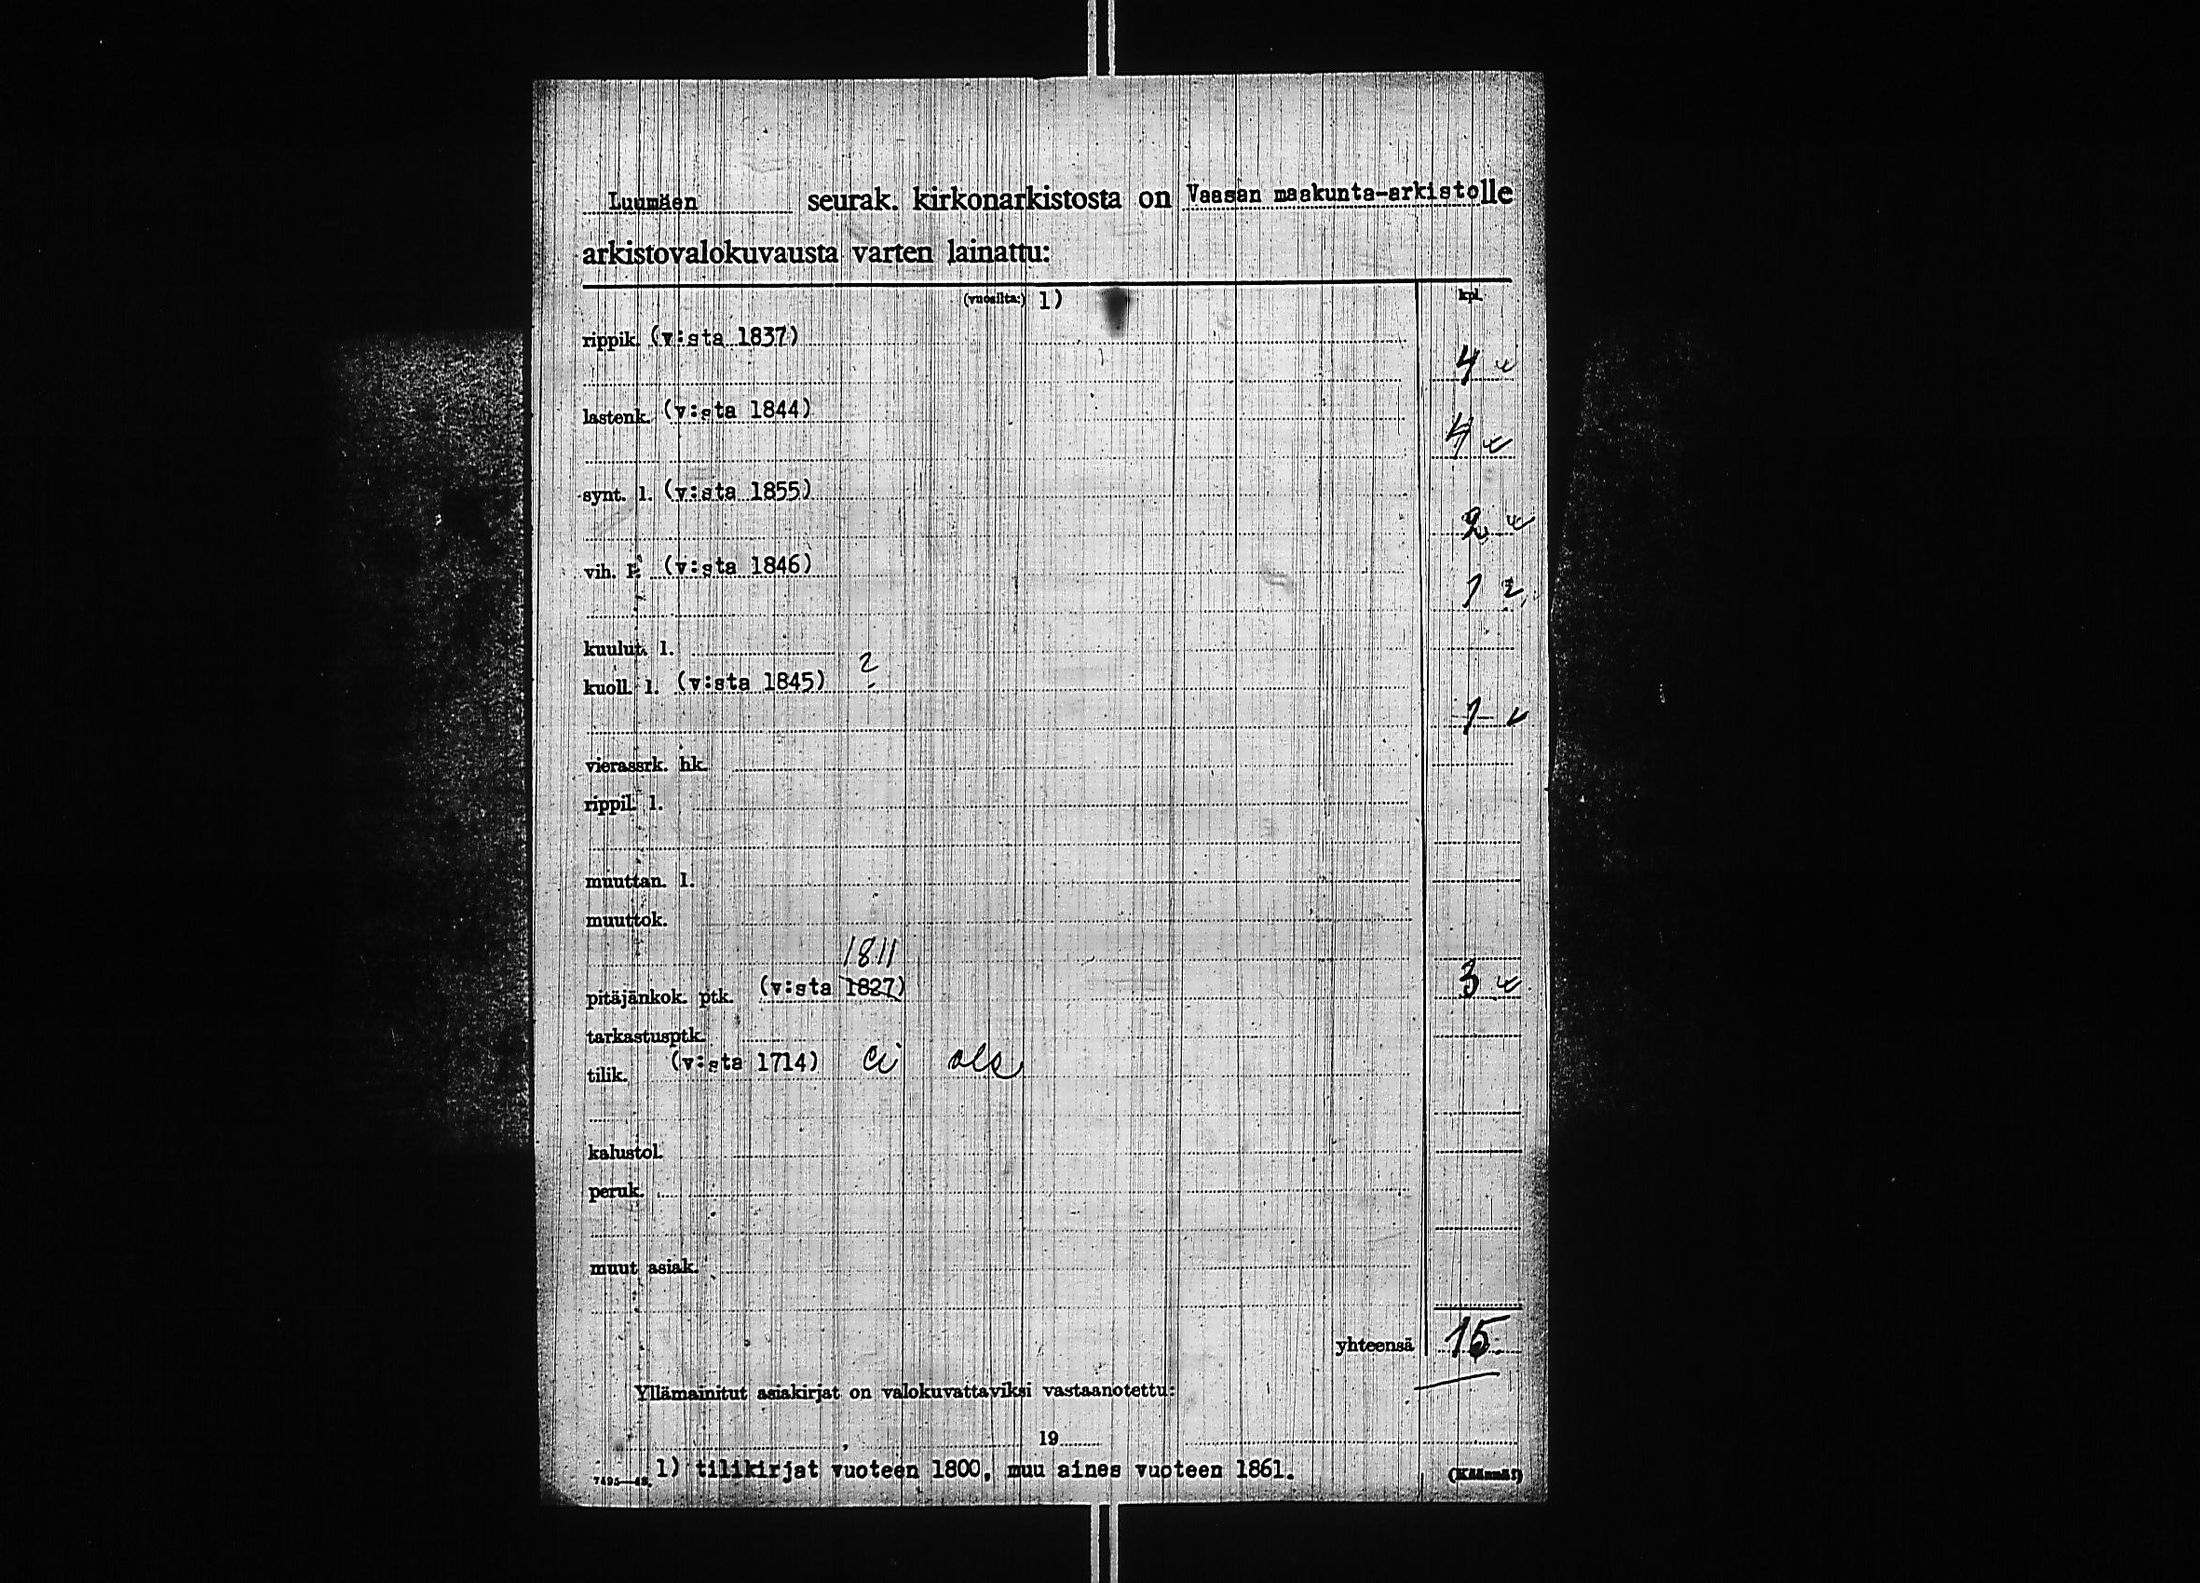 Luumäen seurak. kirkonarkistosta on Vaasan maakunta-arkistolle
arkistovalokuvausta varten lainattu:
(vuosilta:) 1) kpl.
rippik. (v:sta 1837)
4
lastenk. (v:sta 1844)
4
synt. l. (v:sta 1855)
2
vih. l. (v:sta 1846)
1
kuulut. l.
kuoll. l. (v:sta 1845) ?
1
vierassrk. hk.
rippil. l.
muuttan. l.
muuttok.
1811
pitäjänkok. ptk. (v:sta 1827) 3
tarkastusptk.
tilik. (v:sta 1714) ei ole
kalustol.
peruk.
muut asiak.
yhteensä 15
Yllämainitut asiakirjat on valokuvattaviksi vastaanotettu:
19
1) tilikirjat vuoteen 1800, muu aines vuoteen 1861.
7495—48. (Käännä!)